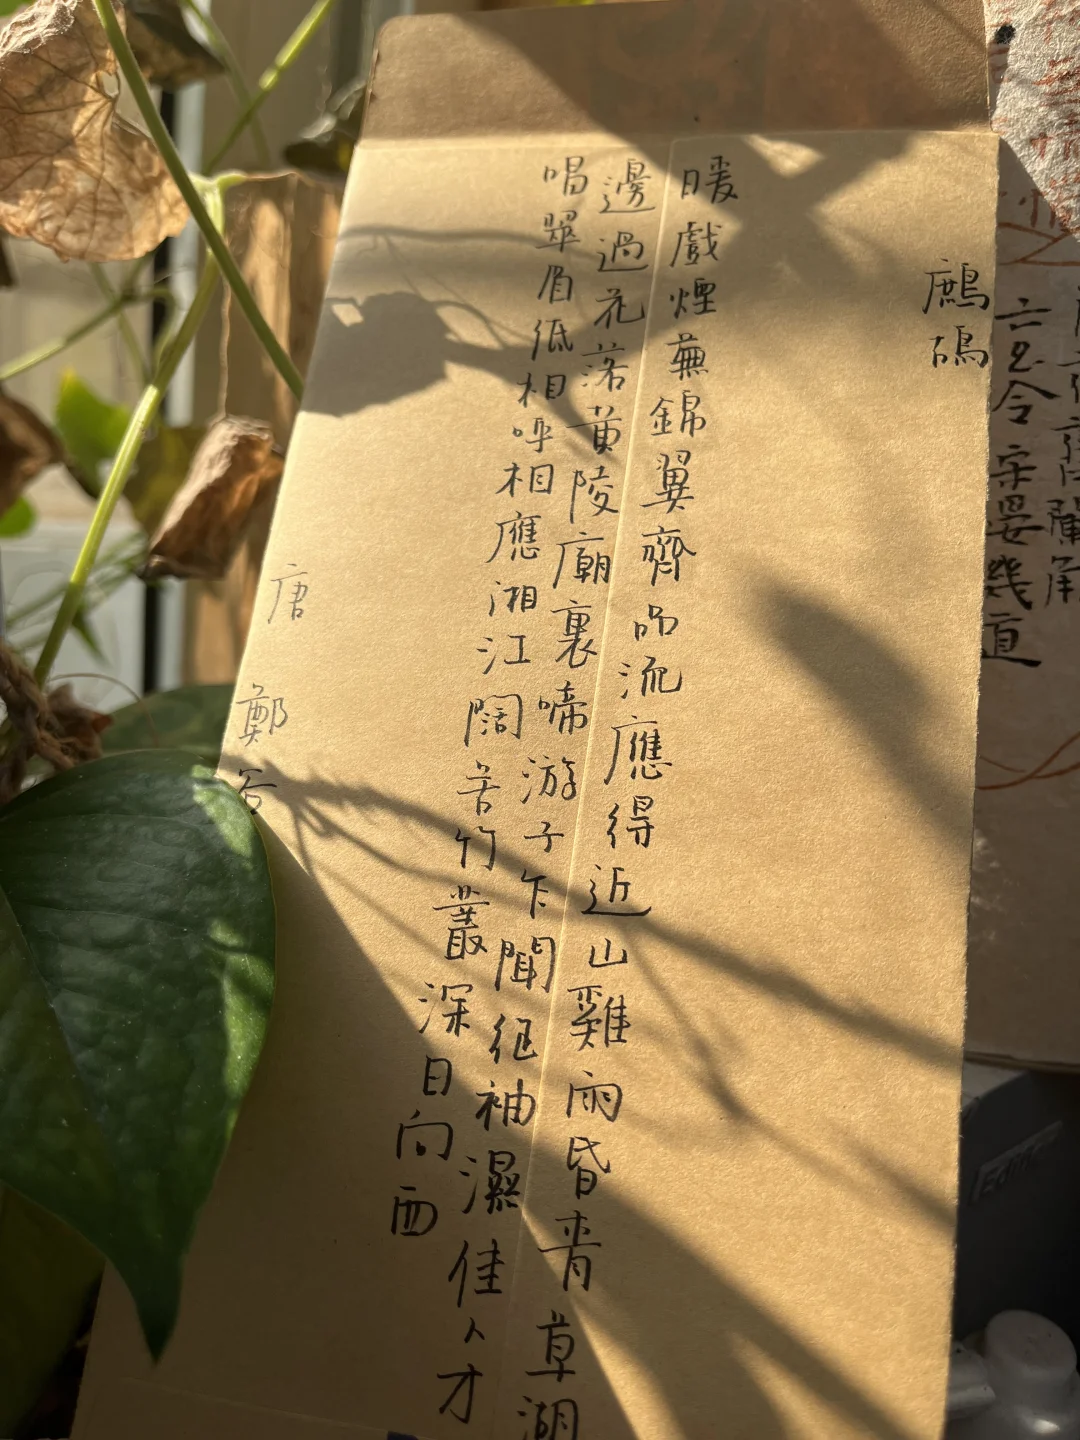 六幺令宋晏幾道
鷓鴣
暖戲煙蕪錦翼齊品流應得近山雞雨昏青草湖
邊過花落黄陵廟裏啼游子乍聞征袖濕佳人才
唱翠眉低相呼相應湘江闊苦竹叢深日向西
唐鄭谷